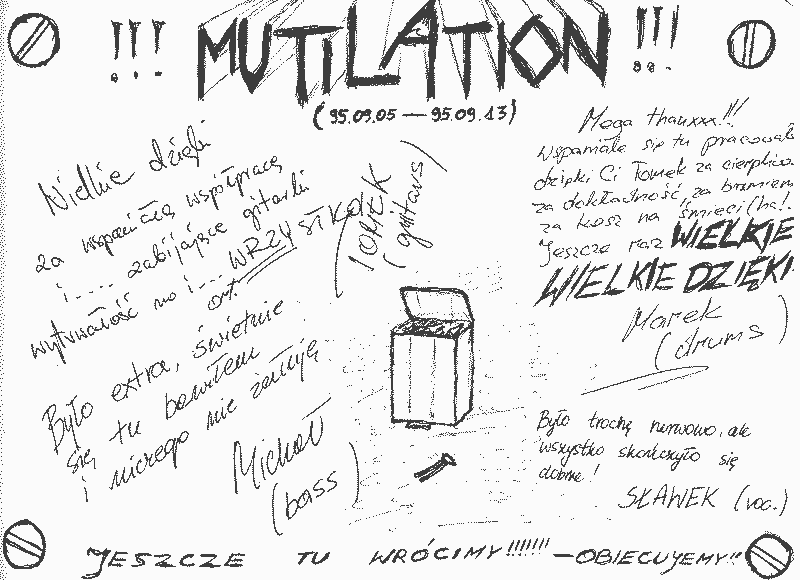 !!! MUTiLATiON !!!
(95.09.05 — 95.09.13)
Wielkie dzięki
za wspaniałą współpracę
i.... zabijające gitarki
wytrwałość no i... WRZYSTKO
ort.
Było extra, świetnie
się tu bawiłem
i niczego nie żałuję
Michał
(bass)
Tomek
(guitars)
Mega thanxxx!!!
Wspaniale się tu pracowało
dzięki Ci Tomek za cierpliwo
za dokładność, za brzmieni
za kosz na śmieci (ha!.
Jeszcze raz WIELKIE
WIELKIE DZIĘKI
Marek
(drums)
Było trochę nerwowo, ale
wszystko skończyło się
dobrze!
SŁAWEK (voc.)
JESZCZE TU WRÓCIMY!!!!!!! —OBIECUJEMY!!